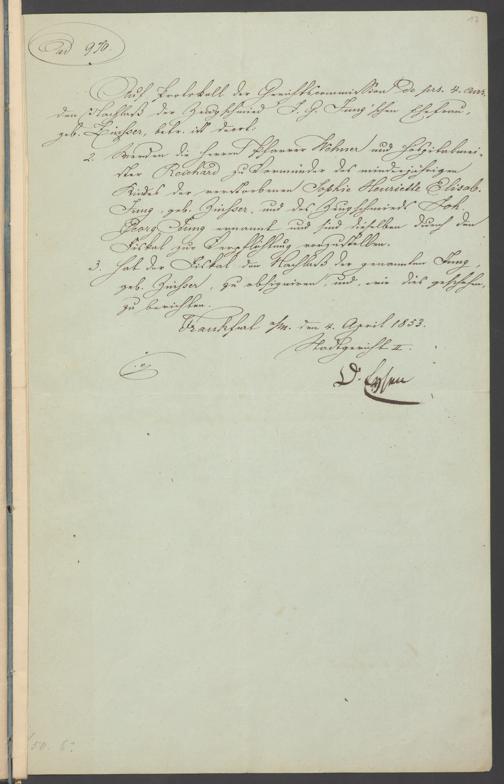 17
ad 970.
Auf Protokoll der Gerichtscommission de prs. 4. curr.
den Nachlaß der Zeugschmied J. G. Jung'schen Ehefrau,
geb. Zeuchser, betr. ist decret.
2. Werden die Herren Pfarrer Wehner und Hospitalmei-
ster Reichard zu Vormünder des minderjährigen
Kindes der verstorbenen Sophie Henriette Elisab.
Jung, geb. Zeuchser, und des Zeugschmieds Joh.
Georg Jung ernannt und sind dieselben durch den
Fiskal zur Verpflichtung vorzustellen.
3. hat der Fiskal den Nachlaß der genannten Jung,
geb. Zeuchser, zu obsigniren, und, wie dies geschehen,
zu berichten.
Frankfurt a/M. den 4. April 1853.
Stadtgericht II.
Dr.
50. 6.